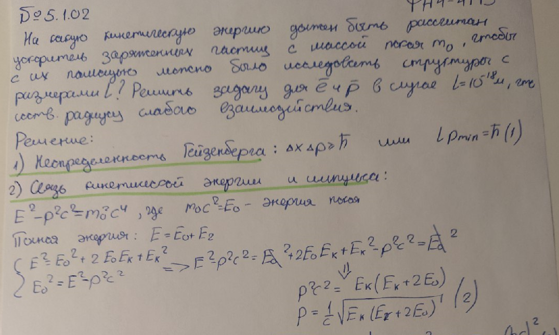 БО 5.1.02
На какую кинетическую энергию должен быть рассчитан
ускоритель заряженных частиц с массой покоя m₀, чтобы
с их помощью можно было исследовать структуры с
размерами l? Решить задачу для e̅ и p̅ в случае l=10⁻¹⁸м, что
соотв. радиусу слабого взаимодействия.
Решение:
1) Неопределенность Гейзенберга: Δx Δp ≥ ħ или l pmin = ħ (1)
2) Связь кинетической энергии и импульса:
E² - p²c² = m₀²c⁴, где m₀c² = E₀ - энергия покоя
Полная энергия: E = E₀ + E₂
{ E² = E₀² + 2E₀Eₖ + Eₖ²
E₀² = E² - p²c² => E² - p²c² = E₀² + 2E₀Eₖ + Eₖ² - p²c² = E₀²
⇓
p²c² = Eₖ(Eₖ + 2E₀)
p = 1/c √Eₖ(Eₖ + 2E₀) (2)